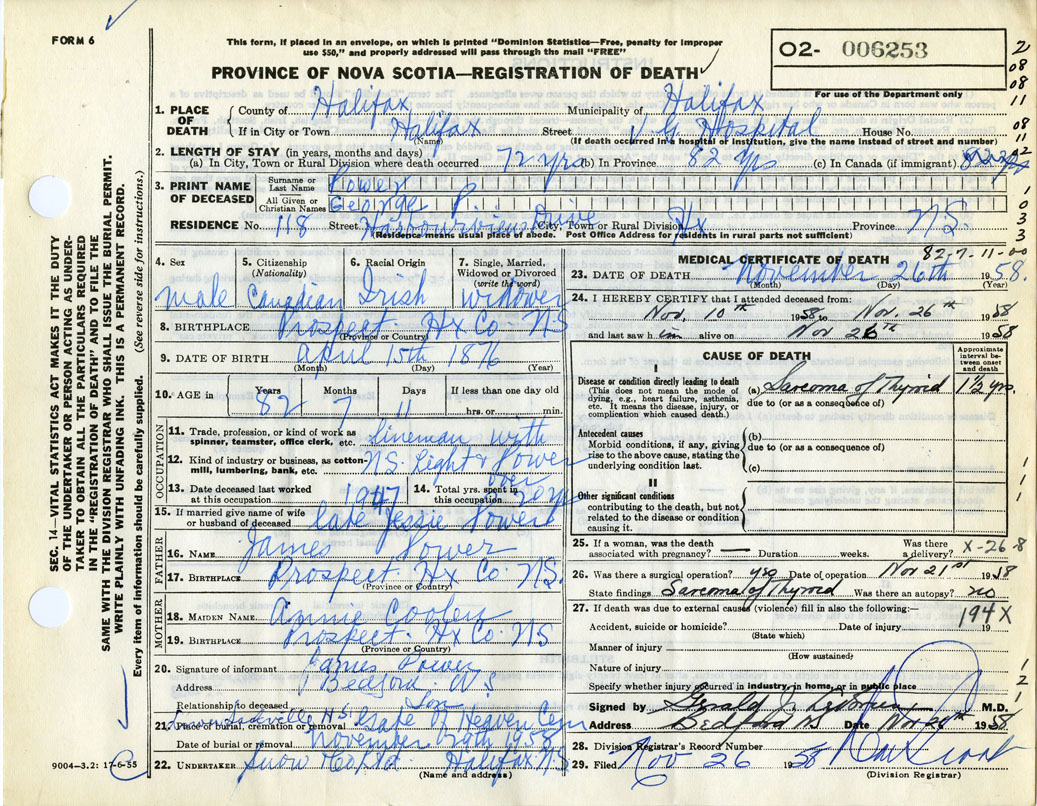 FORM 6
This form, if placed in an envelope, on which is printed "Dominion Statistics—Free, penalty for improper
use $50," and properly addressed will pass through the mail "FREE"
PROVINCE OF NOVA SCOTIA—REGISTRATION OF DEATH
02- 006253
For use of the Department only
2
08
08
11
08
11
02
1
0
3
3
1. PLACE OF DEATH
County of Halifax Municipality of Halifax
If in City or Town Halifax Street V.G. Hospital House No.
(Name) (If death occurred in a hospital or institution, give the name instead of street and number)
2. LENGTH OF STAY (in years, months and days)
(a) In City, Town or Rural Division where death occurred 72 yrs (b) In Province 82 yrs (c) In Canada (if immigrant)
3. PRINT NAME OF DECEASED
Surname or Last Name Power
All Given or Christian Names George P.
RESIDENCE No. 118 Street Harbourview Drive City, Town or Rural Division Hx Province N.S.
(Residence means usual place of abode. Post Office Address for residents in rural parts not sufficient)
SEC. 14—VITAL STATISTICS ACT MAKES IT THE DUTY
OF THE UNDERTAKER OR PERSON ACTING AS UNDER-
TAKER TO OBTAIN ALL THE PARTICULARS REQUIRED
IN THE "REGISTRATION OF DEATH" AND TO FILE THE
SAME WITH THE DIVISION REGISTRAR WHO SHALL ISSUE THE BURIAL PERMIT.
WRITE PLAINLY WITH UNFADING INK. THIS IS A PERMANENT RECORD.
Every item of information should be carefully supplied. (See reverse side for instructions.)
4. Sex male
5. Citizenship (Nationality) Canadian
6. Racial Origin Irish
7. Single, Married, Widowed or Divorced (write the word) widower
8. BIRTHPLACE Prospect Hx Co. N.S
(Province or Country)
9. DATE OF BIRTH April 15th 1876
(Month) (Day) (Year)
10. AGE in Years 82 Months 7 Days 11 If less than one day old hrs. or min.
OCCUPATION
11. Trade, profession, or kind of work as spinner, teamster, office clerk, etc. Lineman with
12. Kind of industry or business, as cotton-mill, lumbering, bank, etc. N.S. Light & Power
13. Date deceased last worked at this occupation 1947
14. Total yrs. spent in this occupation over 20 yrs
15. If married give name of wife or husband of deceased late Jessie Power
FATHER
16. NAME James Power
17. BIRTHPLACE Prospect Hx Co. N.S.
(Province or Country)
MOTHER
18. MAIDEN NAME Annie Coolen
19. BIRTHPLACE Prospect Hx Co. N.S
(Province or Country)
20. Signature of informant James Power
Address Bedford N.S
Relationship to deceased Son
21. Place of burial, cremation or removal Sackville N.S. Gate of Heaven Cem
Date of burial or removal November 29th 1958
22. UNDERTAKER Snow Halifax N.S
(Name and address)
9004—3.2: 17-6-55
MEDICAL CERTIFICATE OF DEATH
82-7-11-00
23. DATE OF DEATH November 26th 1958.
(Month) (Day) (Year)
24. I HEREBY CERTIFY that I attended deceased from:
Nov. 10th 1958 to Nov. 26th 1958
and last saw him alive on Nov 26th 1958
CAUSE OF DEATH
Approximate interval between onset and death
I
Disease or condition directly leading to death
(This does not mean the mode of dying, e.g., heart failure, asthenia, etc. It means the disease, injury, or complication which caused death.)
(a) Sarcoma of Thyroid 1½ yrs.
due to (or as a consequence of)
Antecedent causes
Morbid conditions, if any, giving rise to the above cause, stating the underlying condition last.
(b)
due to (or as a consequence of)
(c)
II
Other significant conditions
contributing to the death, but not related to the disease or condition causing it.
1
1
1
25. If a woman, was the death associated with pregnancy? — Duration weeks. Was there a delivery?
X-26-8
26. Was there a surgical operation? yes Date of operation Nov 21st 1958
State findings Sarcoma of Thyroid Was there an autopsy? no
27. If death was due to external causes (violence) fill in also the following:—
194X
Accident, suicide or homicide? Date of injury 19
(State which)
Manner of injury
(How sustained)
Nature of injury
Specify whether injury occurred in industry, in home, or in public place
1
2
1
Signed by Gerald M.D.
Address Bedford NS Date Nov 1958
28. Division Registrar's Record Number
29. Filed Nov 26 1958
(Division Registrar)